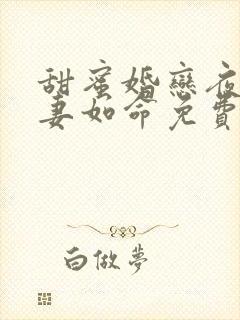 甜蜜婚戀夜
妻如命免費
白做夢